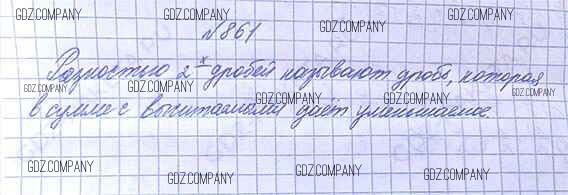 GDZ.COMPANY GDZ.COMPANY GDZ.COMPANY GDZ.COMPANY
№861
GDZ.COMPANY GDZ.COMPANY
Разностью 2-х дробей называют дробь, которая
GDZ.COMPANY GDZ.COMPANY GDZ.COMPANY GDZ.COMPANY GDZ.COMPANY
в сумме с вычитаемым дает уменьшаемое.
GDZ.COMPANY GDZ.COMPANY GDZ.COMPANY GDZ.COMPANY